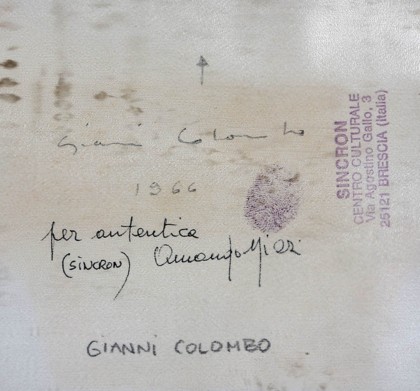 Gianni Colombo
1966
per autentica
(SINCRON) Armando Nizzi
GIANNI COLOMBO
SINCRON
CENTRO CULTURALE
Via Agostino Gallo, 3
25121 BRESCIA (Italia)